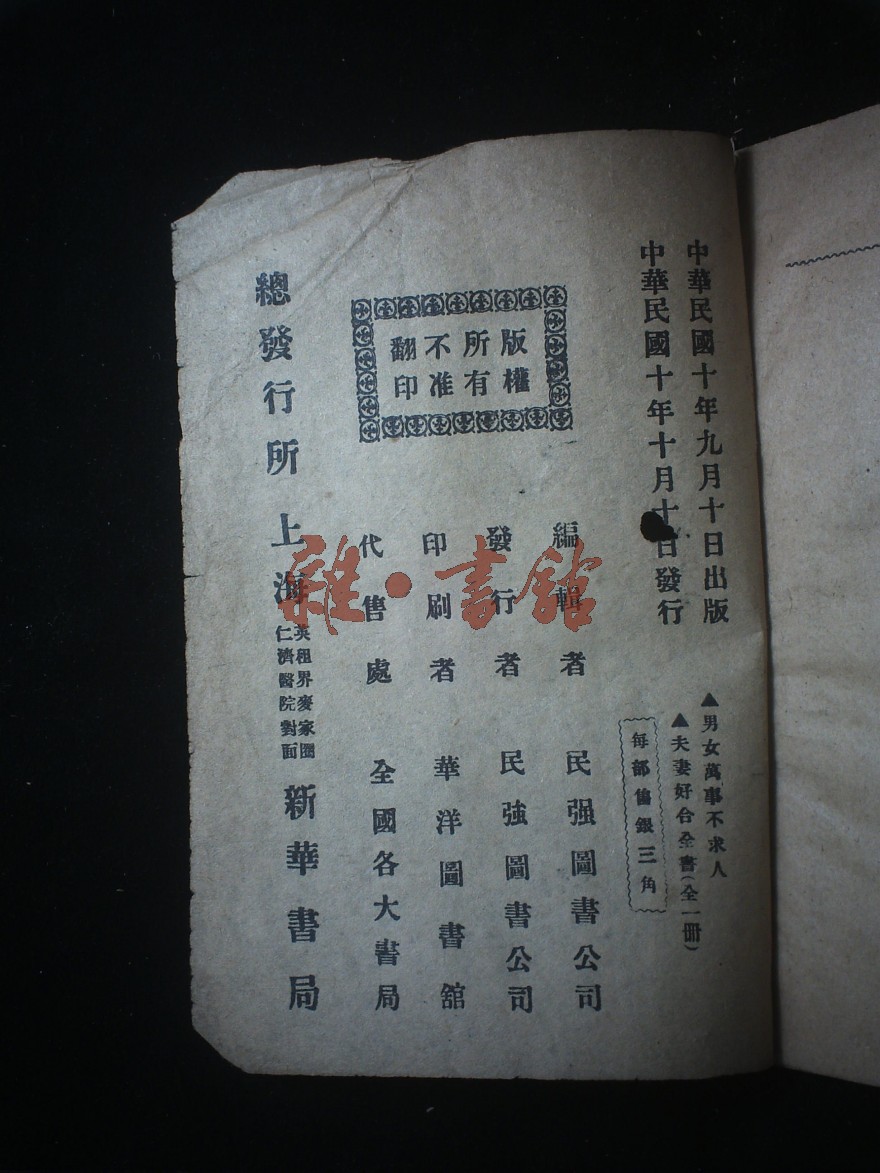 中華民國十年九月十日出版
中華民國十年十月十日發行
▲男女萬事不求人
▲夫妻好合全書(全一冊)
每部售銀三角
版權
所有
不准
翻印
編輯者 民强圖書公司
發行者 民強圖書公司
印刷者 華洋圖書舘
代售處 全國各大書局
總發行所 上海 英租界麥家圈 仁濟醫院對面 新華書局
雜·書舘